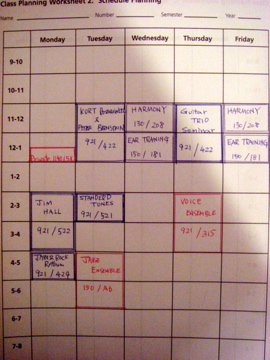 Class Planning Worksheet 2: Schedule Planning
Name Number Semester Year
Monday Tuesday Wednesday Thursday Friday
9-10
10-11
11-12
KURT
&
921/422
HARMONY
130/208
Guitar
TRIO
Seminar
HARMONY
130/208
12-1
Private
EAR TRAINING
150/181
921/422
EAR TRAINING
150/181
1-2
2-3
JIM
HALL
STANDARD
TUNES
921/521
VOICE
ENSEMBLE
3-4
921/522
921/315
4-5
921/424
JAZZ
ENSEMBLE
5-6
6-7
7-8